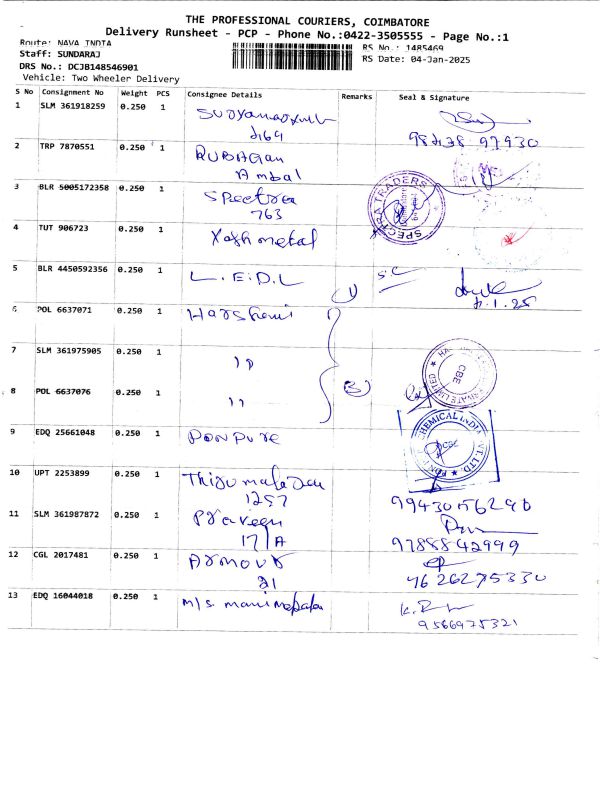 THE PROFESSIONAL COURIERS, COIMBATORE
Delivery Runsheet - PCP - Phone No.:0422-3505555 - Page No.:1
Route: NAVA INDIA
RS No.: 1485469
Staff: SUNDARAJ
RS Date: 04-Jan-2025
DRS No.: DCJB148546901
Vehicle: Two Wheeler Delivery
S No Consignment No Weight PCS Consignee Details Remarks Seal & Signature
1 SLM 361918259 0.250 1
2 TRP 7870551 0.250 1 RUBAGAn
Ambal
3 BLR 5005172358 0.250 1 Spectra
763
SPECTRA TRADERS
4 TUT 906723 0.250 1 Yash metal
5 BLR 4450592356 0.250 1 L.E.D.L 1) S.C
6 POL 6637071 0.250 1 Harshani
7 SLM 361975905 0.250 1 11
CBE
8 POL 6637076 0.250 1 11 3)
9 EDQ 25661048 0.250 1 PonPure
CHEMICAL INDIA
10 UPT 2253899 0.250 1 Thirumalaian
1257
11 SLM 361987872 0.250 1 Praveen
171A
9788842999
12 CGL 2017481 0.250 1 Armour
21
9626275330
13 EDQ 16044018 0.250 1 M/s. manimekala
9566975321